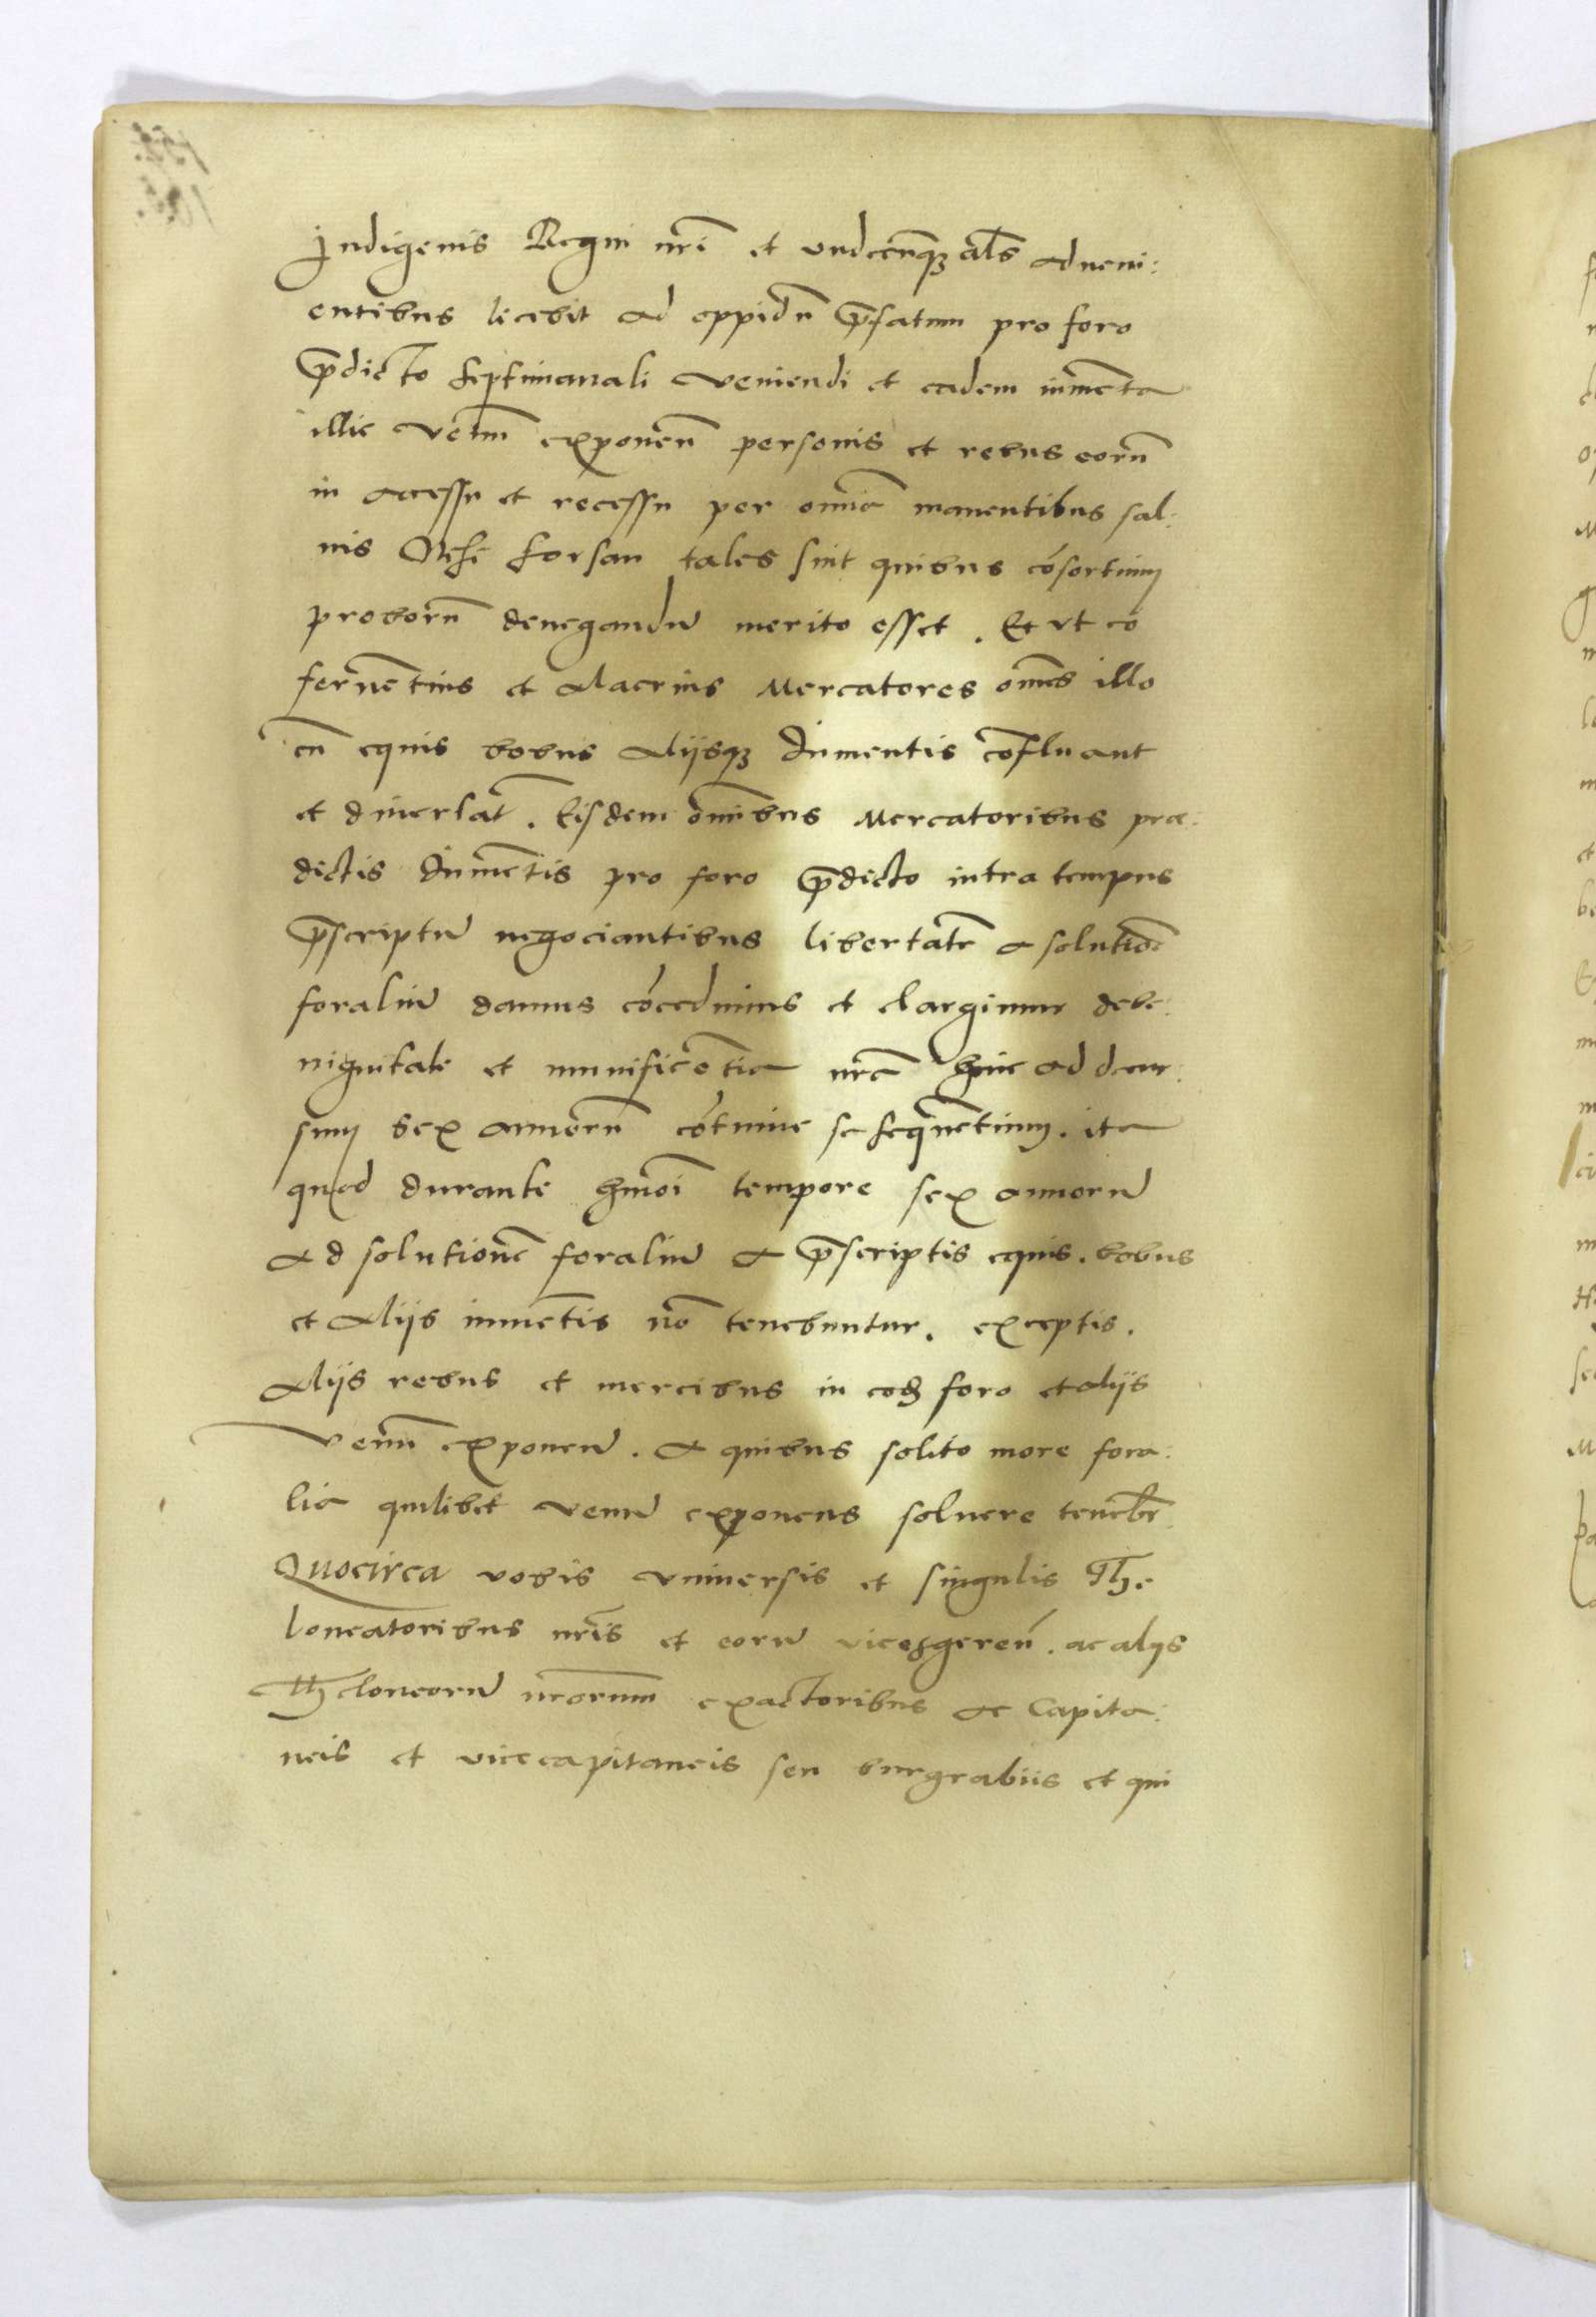 Indigenis Regni nrĩ et vndecunq3 als adueni:
entibus licebit ad oppidũ p̃fatum pro foro
p̃dicto septimanali veniendi et eadem iumẽta
illic venũ exponen̄ personis et rebus eorũ
in accessu et recessu per omnia manentibus sal:
uis Nisi forsan tales sint quibus cõsortium
proborũ denegandũ merito esset. Et vt eo
feruẽtius et alacrius Mercatores om̃es illo
cũ equis bobus alijsq3 Iumentis cõfluant
et diuersãt. Eisdem om̃ibus Mercatoribus præ:
dictis Iumẽtis pro foro p̃dicto intra tempus
p̃scriptũ negociantibus libertatẽ a solutiõe
foraliũ damus cõcedimus et elargimur de be:
nignitate et munificẽtia nrã hinc ad decur:
sum sex annorũ cõtinue se sequẽtium. ita
quod durante hmõi tempore sex annorũ
ad solutionẽ foraliũ a p̃scriptis equis. bobus
et alijs iumẽtis nõ tenebuntur. exceptis.
alijs rebus et mercibus in eod foro et alijs
venũ exponen̄. a quibus solito more fora:
lia quilibet venũ exponens soluere tenebr̃
Quocirca vobis vniuersis et singulis The
loneatoribus nr̃is et eorũ vicesgeren̄. ac alijs
Theloneorũ nr̃orum exactoribus ac Capita:
neis et vicecapitaneis seu burgrabiis et qui